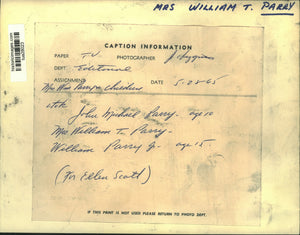 MRS WILLIAM T. PARRY
CAPTION INFORMATION
PAPER T.U. PHOTOGRAPHER
DEPT. Editorial
ASSIGNMENT DATE 5-28-65
Mrs Wm Parry & Children
with
John Michael Parry - age 10
Mrs William T. Parry -
William Parry Jr - age 15.
(For Ellen Scott)
IF THIS PRINT IS NOT USED PLEASE RETURN TO PHOTO DEPT.